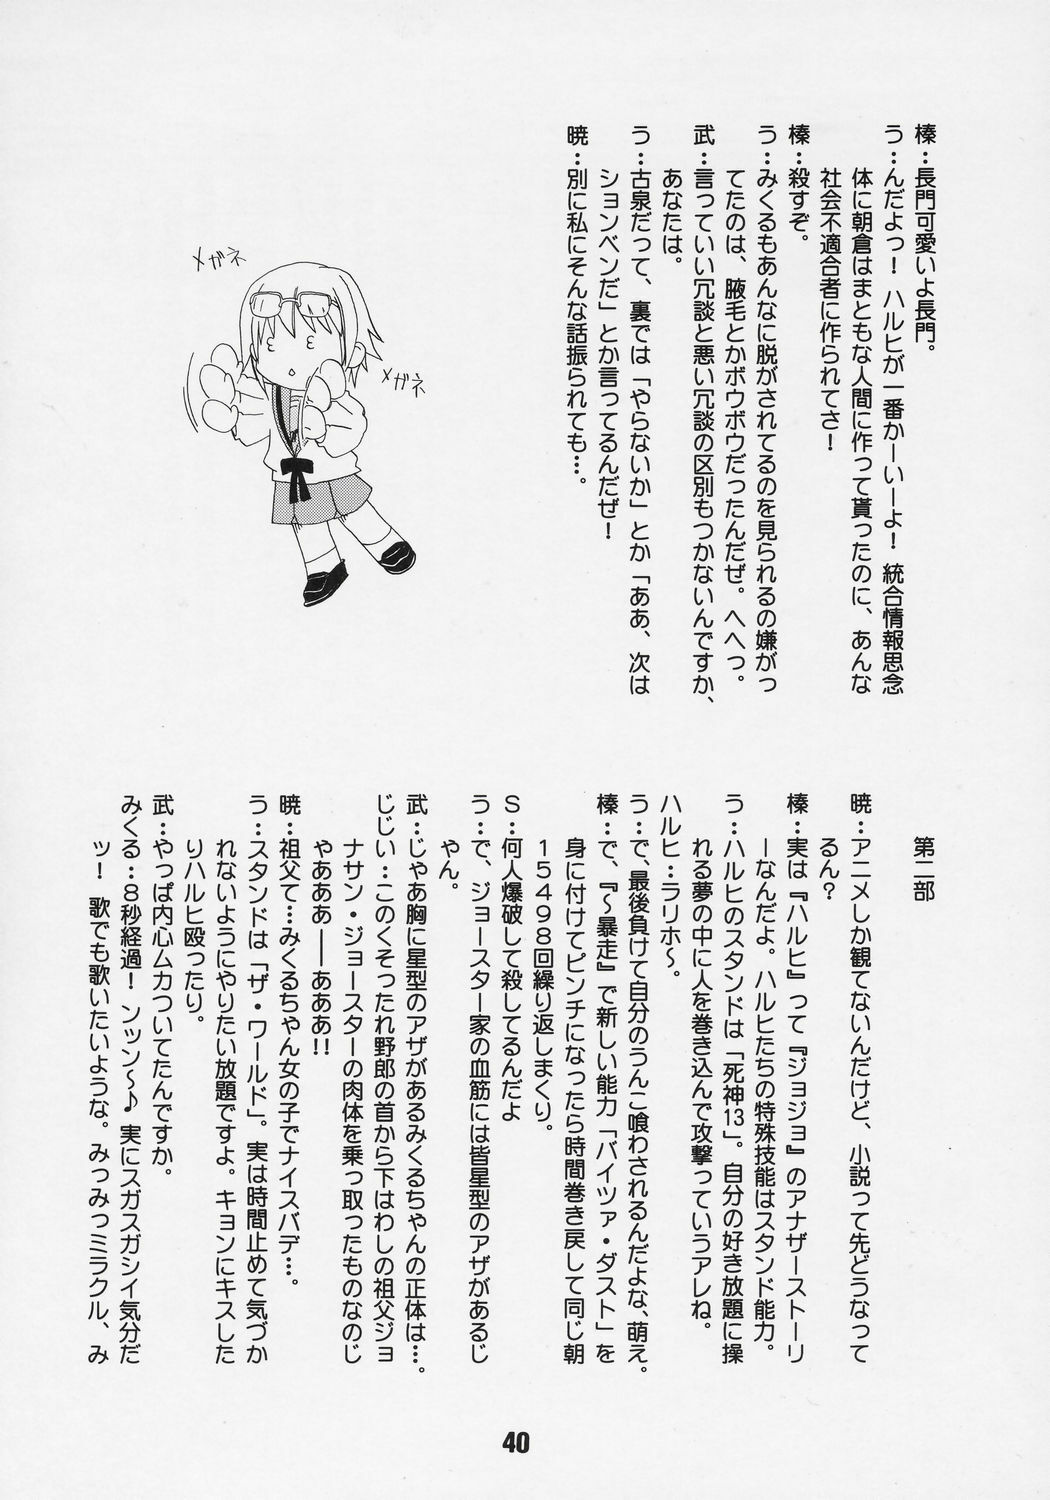 榛：長門可愛いよ長門。
う：んだよっ！ ハルヒが一番かーいーよ！ 統合情報思念
体に朝倉はまともな人間に作って貰ったのに、あんな
社会不適合者に作られてさ！
榛：殺すぞ。
う：みくるもあんなに脱がされてるのを見られるの嫌がっ
てたのは、腋毛とかボウボウだったんだぜ。へへっ。
武：言っていい冗談と悪い冗談の区別もつかないんですか、
あなたは。
う：古泉だって、裏では「やらないか」とか「ああ、次は
ションベンだ」とか言ってるんだぜ！
暁：別に私にそんな話振られても…。
メガネ
メガネ
第二部
暁：アニメしか観てないんだけど、小説って先どうなって
るん？
榛：実は『ハルヒ』って『ジョジョ』のアナザーストーリ
ーなんだよ。ハルヒたちの特殊技能はスタンド能力。
う：ハルヒのスタンドは「死神13」。自分の好き放題に操
れる夢の中に人を巻き込んで攻撃っていうアレね。
ハルヒ：ラリホ〜。
う：で、最後負けて自分のうんこ喰わされるんだよな、萌え。
榛：で、『〜暴走』で新しい能力「バイツァ・ダスト」を
身に付けてピンチになったら時間巻き戻して同じ朝
１５４９８回繰り返しまくり。
Ｓ：何人爆破して殺してるんだよ
う：で、ジョースター家の血筋には皆星型のアザがあるじ
ゃん。
武：じゃあ胸に星型のアザがあるみくるちゃんの正体は…。
じじい：このくそったれ野郎の首から下はわしの祖父ジョ
ナサン・ジョースターの肉体を乗っ取ったものなのじ
ゃあああ――あああ!!
暁：祖父て…みくるちゃん女の子でナイスバデ…。
う：スタンドは「ザ・ワールド」。実は時間止めて気づか
れないようにやりたい放題ですよ。キョンにキスした
りハルヒ殴ったり。
武：やっぱ内心ムカついてたんですか。
みくる：8秒経過！ ンッン〜♪ 実にスガスガシイ気分だ
ッ！ 歌でも歌いたいような。みっみっミラクル、み
40